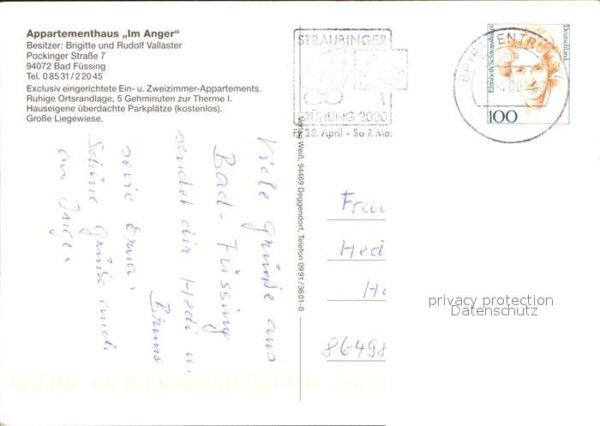 Appartementhaus „Im Anger"
Besitzer: Brigitte und Rudolf Vallaster
Pockinger Straße 7
94072 Bad Füssing
Tel. 0 85 31 / 2 20 45
Exclusiv eingerichtete Ein- u. Zweizimmer-Appartements.
Ruhige Ortsrandlage, 5 Gehminuten zur Therme I.
Hauseigene überdachte Parkplätze (kostenlos).
Große Liegewiese.
STRAUBINGER
FRÜHLING 2000
Fr 28. April - So 7. Mai
BRIEFZENTRUM
Elisabeth Schwarzhaupt
Deutschland
100
Viele Grüße aus
Bad-Füssing
sendet dir Hedi u.
Bruno
sowie
Schöne Grüße auch
an
Weiß, 94469 Deggendorf, Telefon 0991/3601-0
Frau
Hed
Ha
86498
privacy protection
Datenschutz